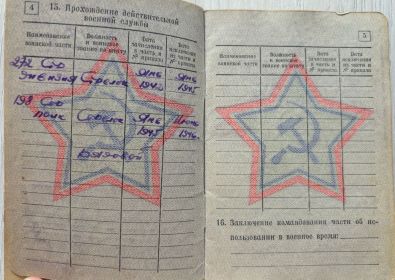 4
15. Прохождение действительной
военной службы
Наименование воинской части
Должность и воинское звание по штату
Дата зачисления в часть и № приказа
Дата исключения из части и № приказа
292 Стр Янв Янв
дивизия Стрелок 1942 1945
198 Стр
полк Стрелок Янв Июнь
1945 1946
Рядовой
5
Наименование воинской части
Должность и воинское звание по штату
Дата зачисления в часть и № приказа
Дата исключения из части и № приказа
16. Заключение командования части об ис-
пользовании в военное время: